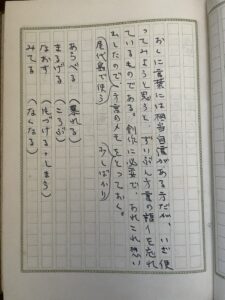 おしに言葉には相当自信がある方だが、いざ使
ってみようと思うと、ずいぶん方言の類イを忘れ
ているものである。創作に必要で、あれこれ想い
出したので、方言のメモをとっておく。
(尾代島で使う みしばかり)
あらべる (暴れる)
まるげる (ころぶ)
なおす (片づける・しまう)
みてる (なくなる)